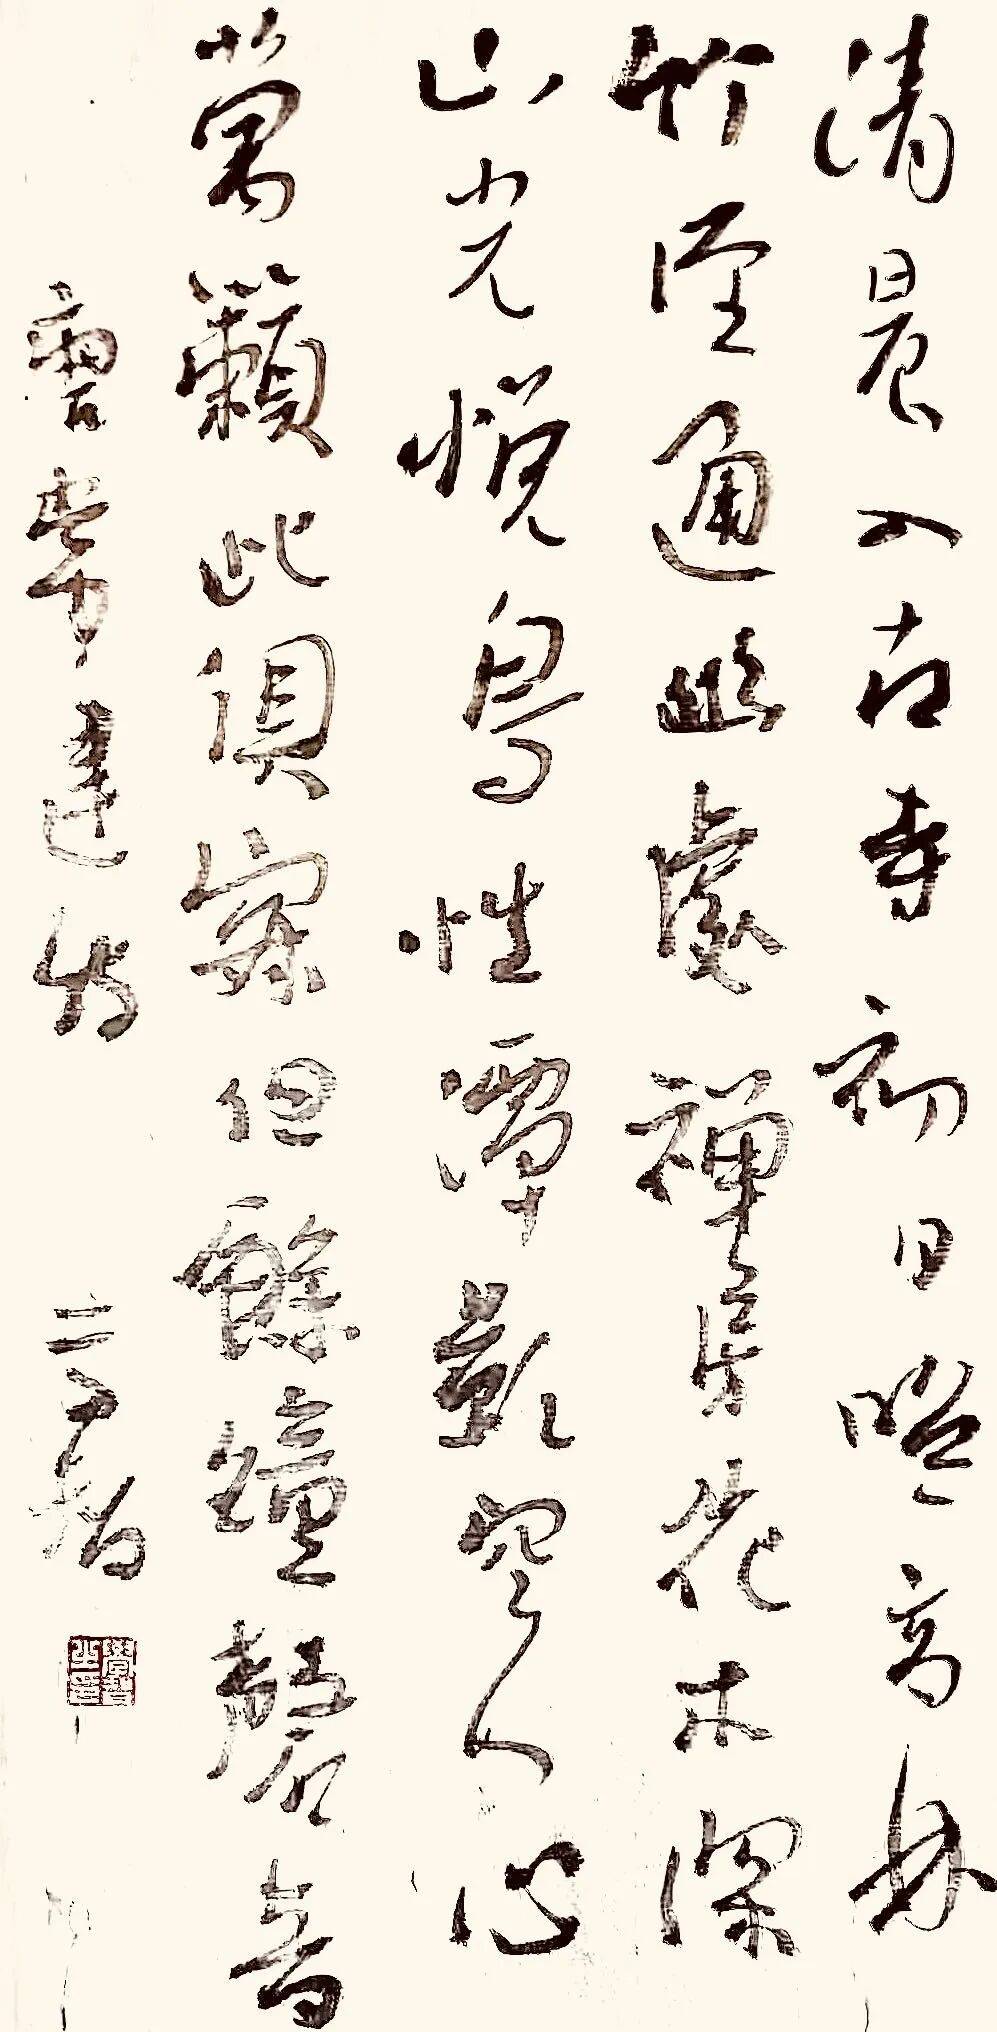 清晨入古寺初日照高林
竹徑通幽處禪房花木深
山光悅鳥性潭影空人心
萬籟此俱寂但餘鐘磬音
唐常建詩